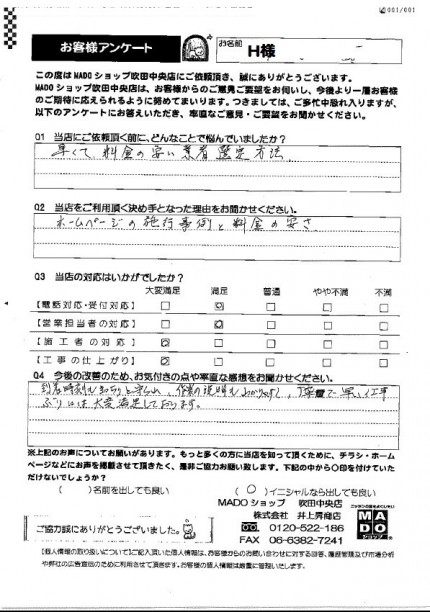 001/001
お客様アンケート
お名前
H様
この度はMADOショップ吹田中央店にご依頼頂き、誠にありがとうございます。
MADOショップ吹田中央店は、お客様からのご意見ご要望をお伺いし、今後より一層お客様
のご期待に応えられるように努めてまいります。つきましては、ご多忙中恐れ入りますが、
以下のアンケートにお答えいただき、率直なご意見・ご要望をお聞かせください。
Q1 当店にご依頼頂く前に、どんなことで悩んでいましたか？
早くて、料金の安い業者選定方法
Q2 当店をご利用頂く決め手となった理由をお聞かせください。
ホームページの施行事例と料金の安さ
Q3 当店の対応はいかがでしたか？
大変満足 満足 普通 やや不満 不満
【電話対応・受付対応】
【営業担当者の対応】
【施工者の対応】
【工事の仕上がり】
Q4 今後の改善のため、お気付きの点や率直な感想をお聞かせください。
到着時刻も
作業の説明もわかりやすく、丁寧で早い工事
ぶりには大変満足しております。
※上記のお声についてお願いがあります。もっと多くの方に当店を知って頂くために、チラシ・ホーム
ページなどにお声を掲載させて頂きたく、是非ご協力お願い致します。下記の中から○印を付けていた
だけないでしょうか？
（　）名前を出しても良い
（○）イニシャルなら出しても良い
ご協力誠にありがとうございました。
MADOショップ 吹田中央店
株式会社 井上昇商店
0120-522-186
FAX 06-6382-7241
MADO
ショップ
【個人情報の取り扱いについて】ご記入頂いた個人情報は、お客様からのお問い合わせに対する回答、履歴管理及び市場分析
や弊社の広告宣伝のために利用させて頂きます。お客様の個人情報は厳重に管理いたします。